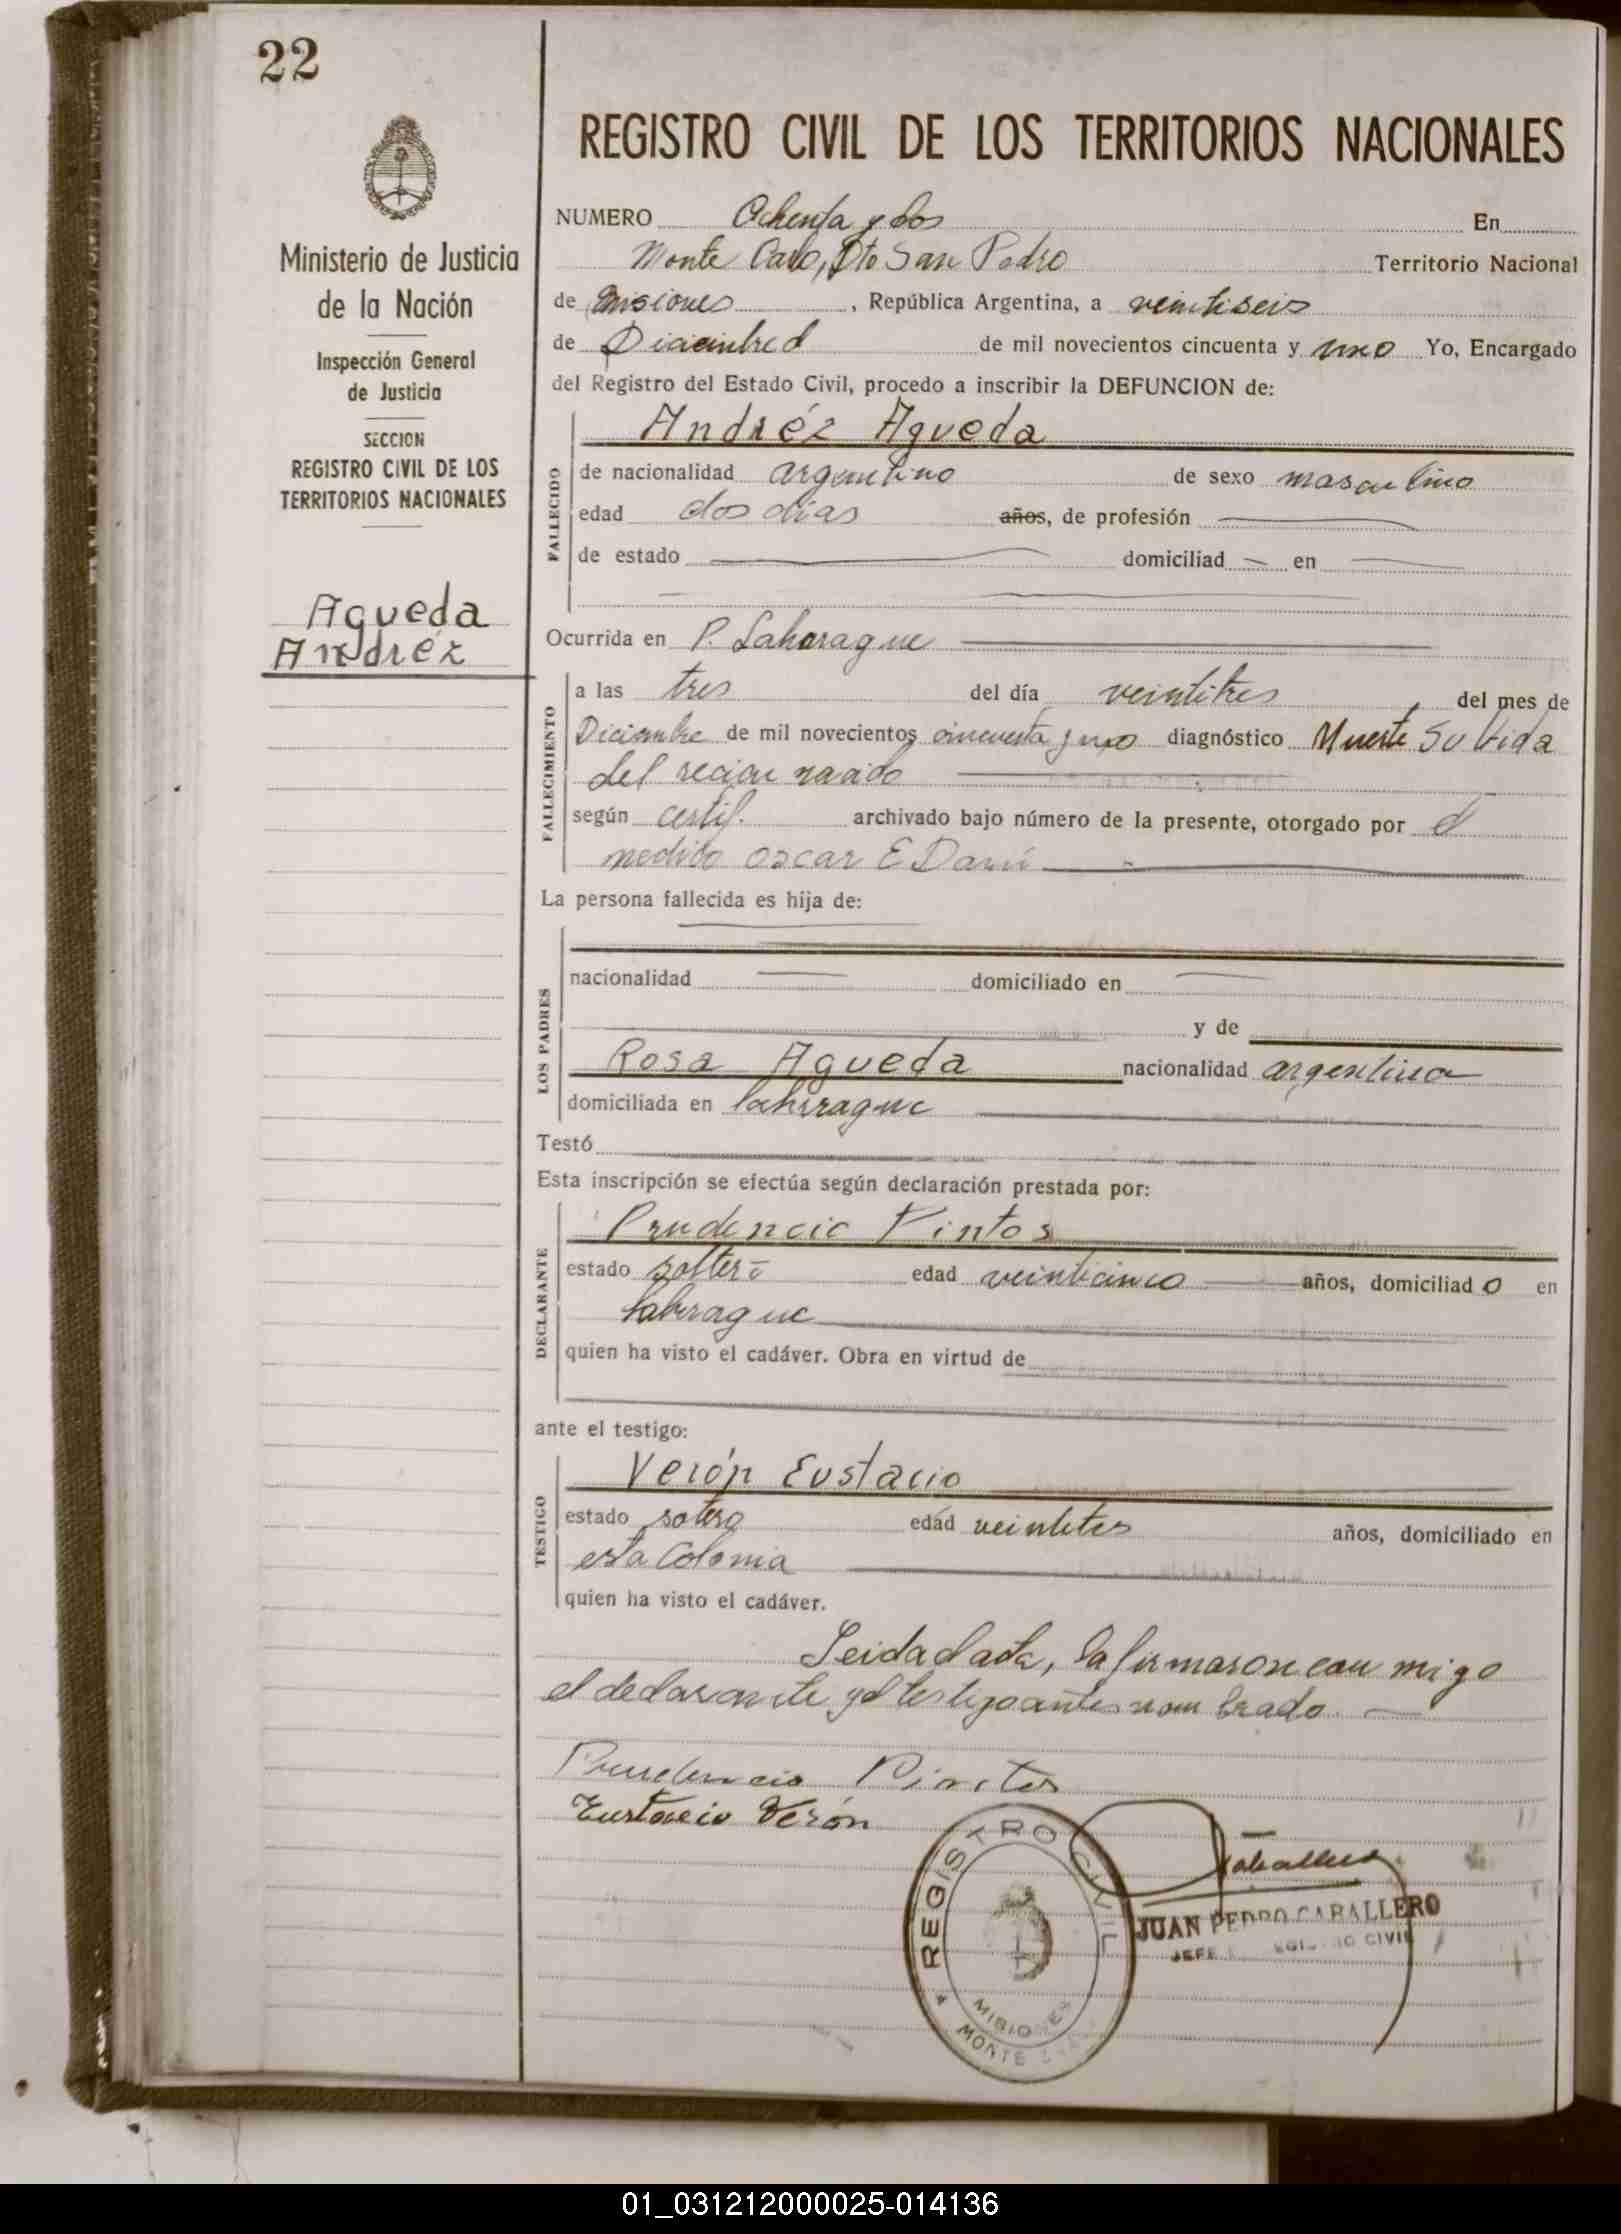 22
REGISTRO CIVIL DE LOS TERRITORIOS NACIONALES
Ministerio de Justicia
de la Nación
Inspección General
de Justicia
SECCION
REGISTRO CIVIL DE LOS
TERRITORIOS NACIONALES
Agueda
Andréz
NUMERO Ochenta y dos En
Monte Carlo, Dto San Pedro Territorio Nacional
de Misiones, República Argentina, a veintiseis
de Diciembre de mil novecientos cincuenta y uno Yo, Encargado
del Registro del Estado Civil, procedo a inscribir la DEFUNCION de:
FALLECIDO
Andréz Agueda
de nacionalidad argentino de sexo masculino
edad dos dias años, de profesión
de estado domiciliad en
Ocurrida en P. Laharague
FALLECIMIENTO
a las tres del día veintitres del mes de
Diciembre de mil novecientos cincuenta y uno diagnóstico Muerte Subida
del recien nacido
según certif. archivado bajo número de la presente, otorgado por el
medico Oscar E
La persona fallecida es hija de:
LOS PADRES
nacionalidad domiciliado en
y de
Rosa Agueda nacionalidad argentina
domiciliada en Laharague
Testó
Esta inscripción se efectúa según declaración prestada por:
DECLARANTE
Prudencio Pintos
estado soltero edad veinticinco años, domiciliado en
Laharague
quien ha visto el cadáver. Obra en virtud de
ante el testigo:
TESTIGO
Verón Eustacio
estado sotero edad veintetres años, domiciliado en
esta Colonia
quien ha visto el cadáver.
Leida el acta, la firmaron conmigo
el declarante y el testigo antes nombrado.
Prudencio Pintos
Eustacio Verón
Caballero
REGISTRO CIVIL
MISIONES
MONTE
JUAN PEDRO CABALLERO
JEFE REGISTRO CIVIL
01_031212000025-014136